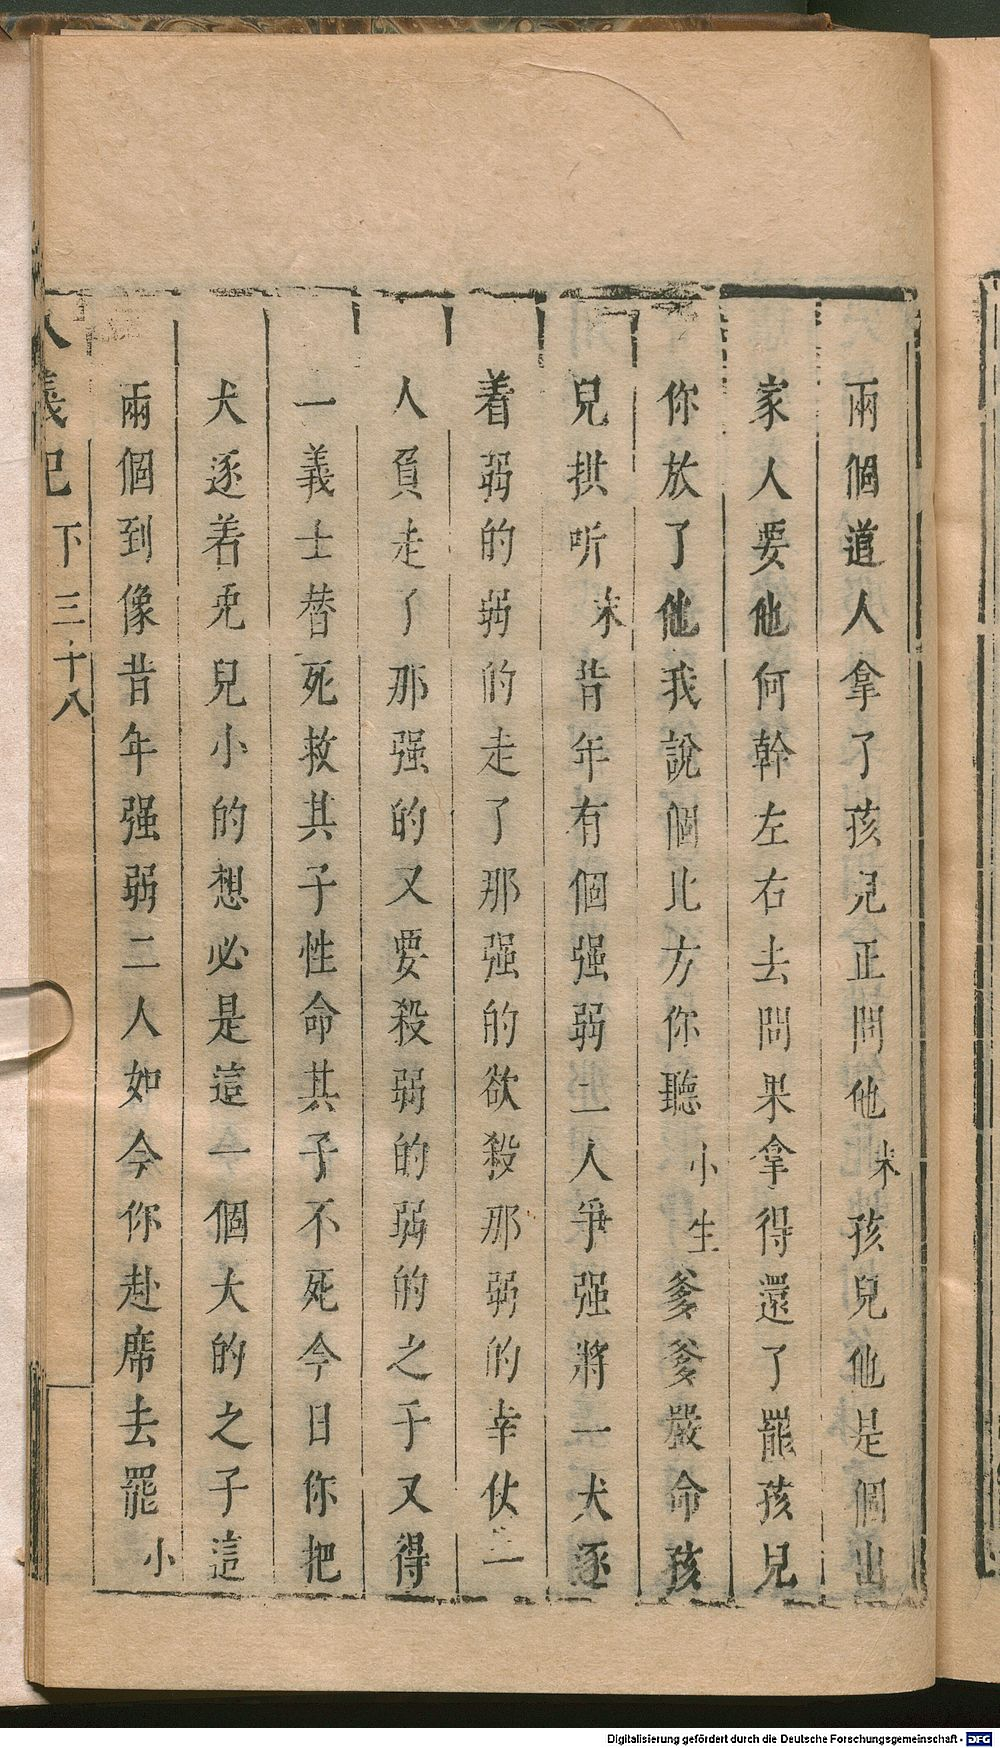 兩個道人拿了孩兒正問他末孩兒他是個出
家人要他何幹左右去問果拿得還了罷孩兒
你放了他我說個比方你聽小生爹爹嚴命孩
兒拱听末昔年有個强弱二人爭强將一犬逐
着弱的弱的走了那强的欲殺那弱的幸仗二
人負走了那强的又要殺弱的弱的之子又得
一義士替死救其子性命其子不死今日你把
犬逐着兎兒小的想必是這一個大的之子這
兩個到像昔年强弱二人如今你赴席去罷小
八義記 下 三十八
Digitalisierung gefördert durch die Deutsche Forschungsgemeinschaft - DFG